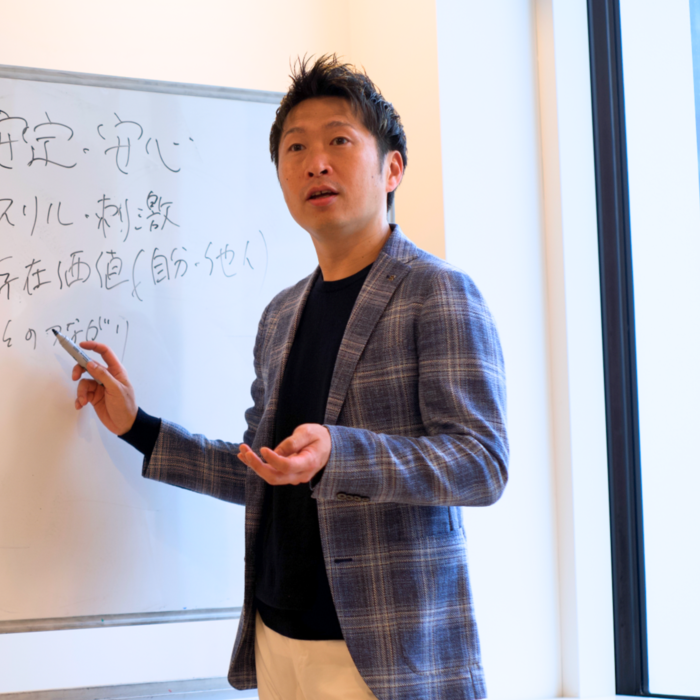 安定・安心
スリル・刺激
所在価値(自分・他人)
とのつながり